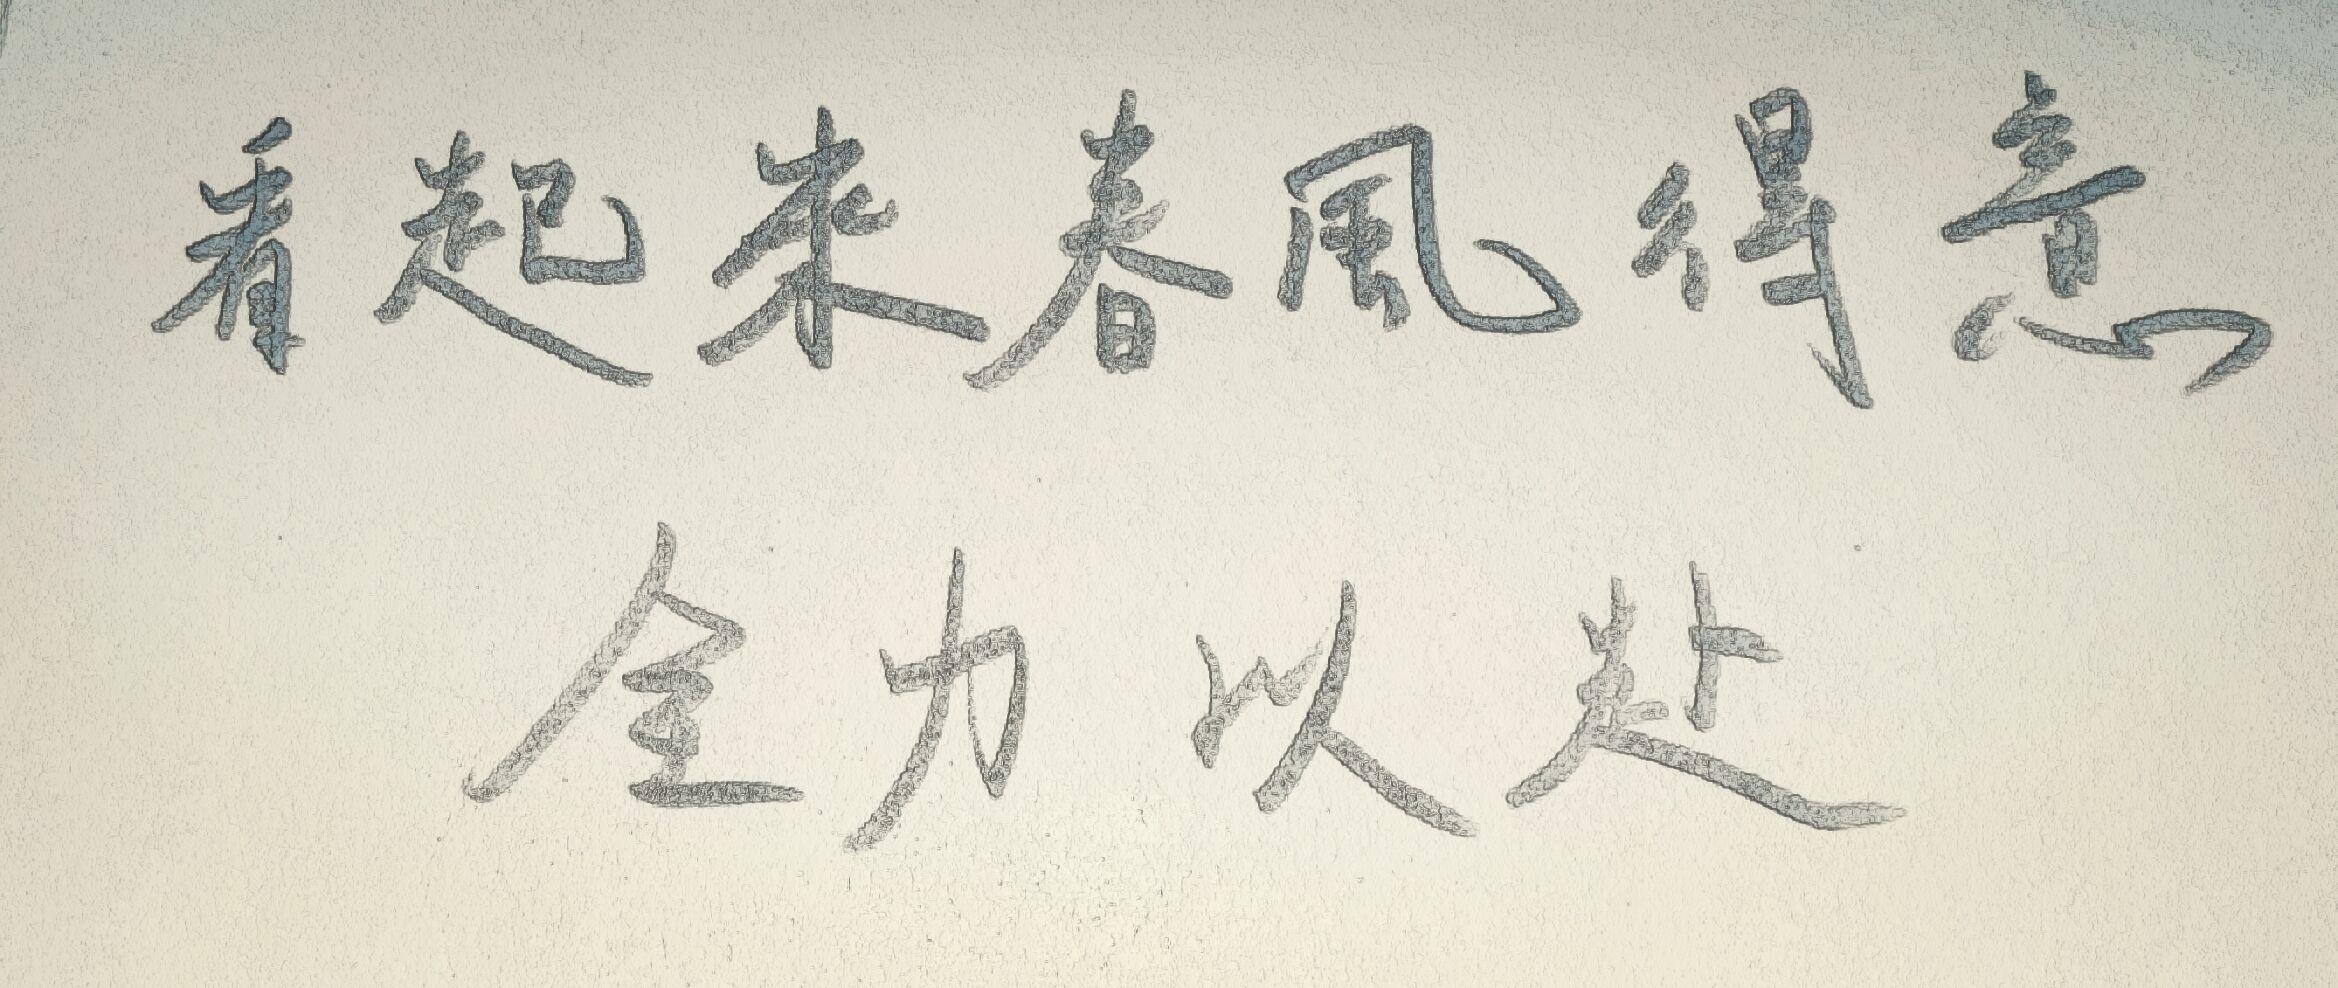 看起來春風得意
全力以赴